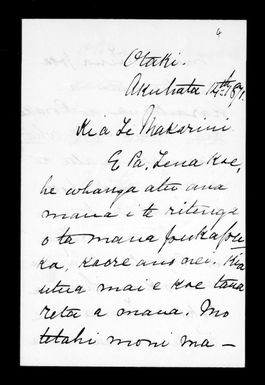 Otaki.
Akuhata 14th 1871.
Kia Te Makarini
E Pa, Tena koe,
he whanga atu ana
maua i te ritenga
o ta maua
ka, kaore ano nei. Kia
utua mai e koe taua
reta a maua. Mo
tetahi moni ma -